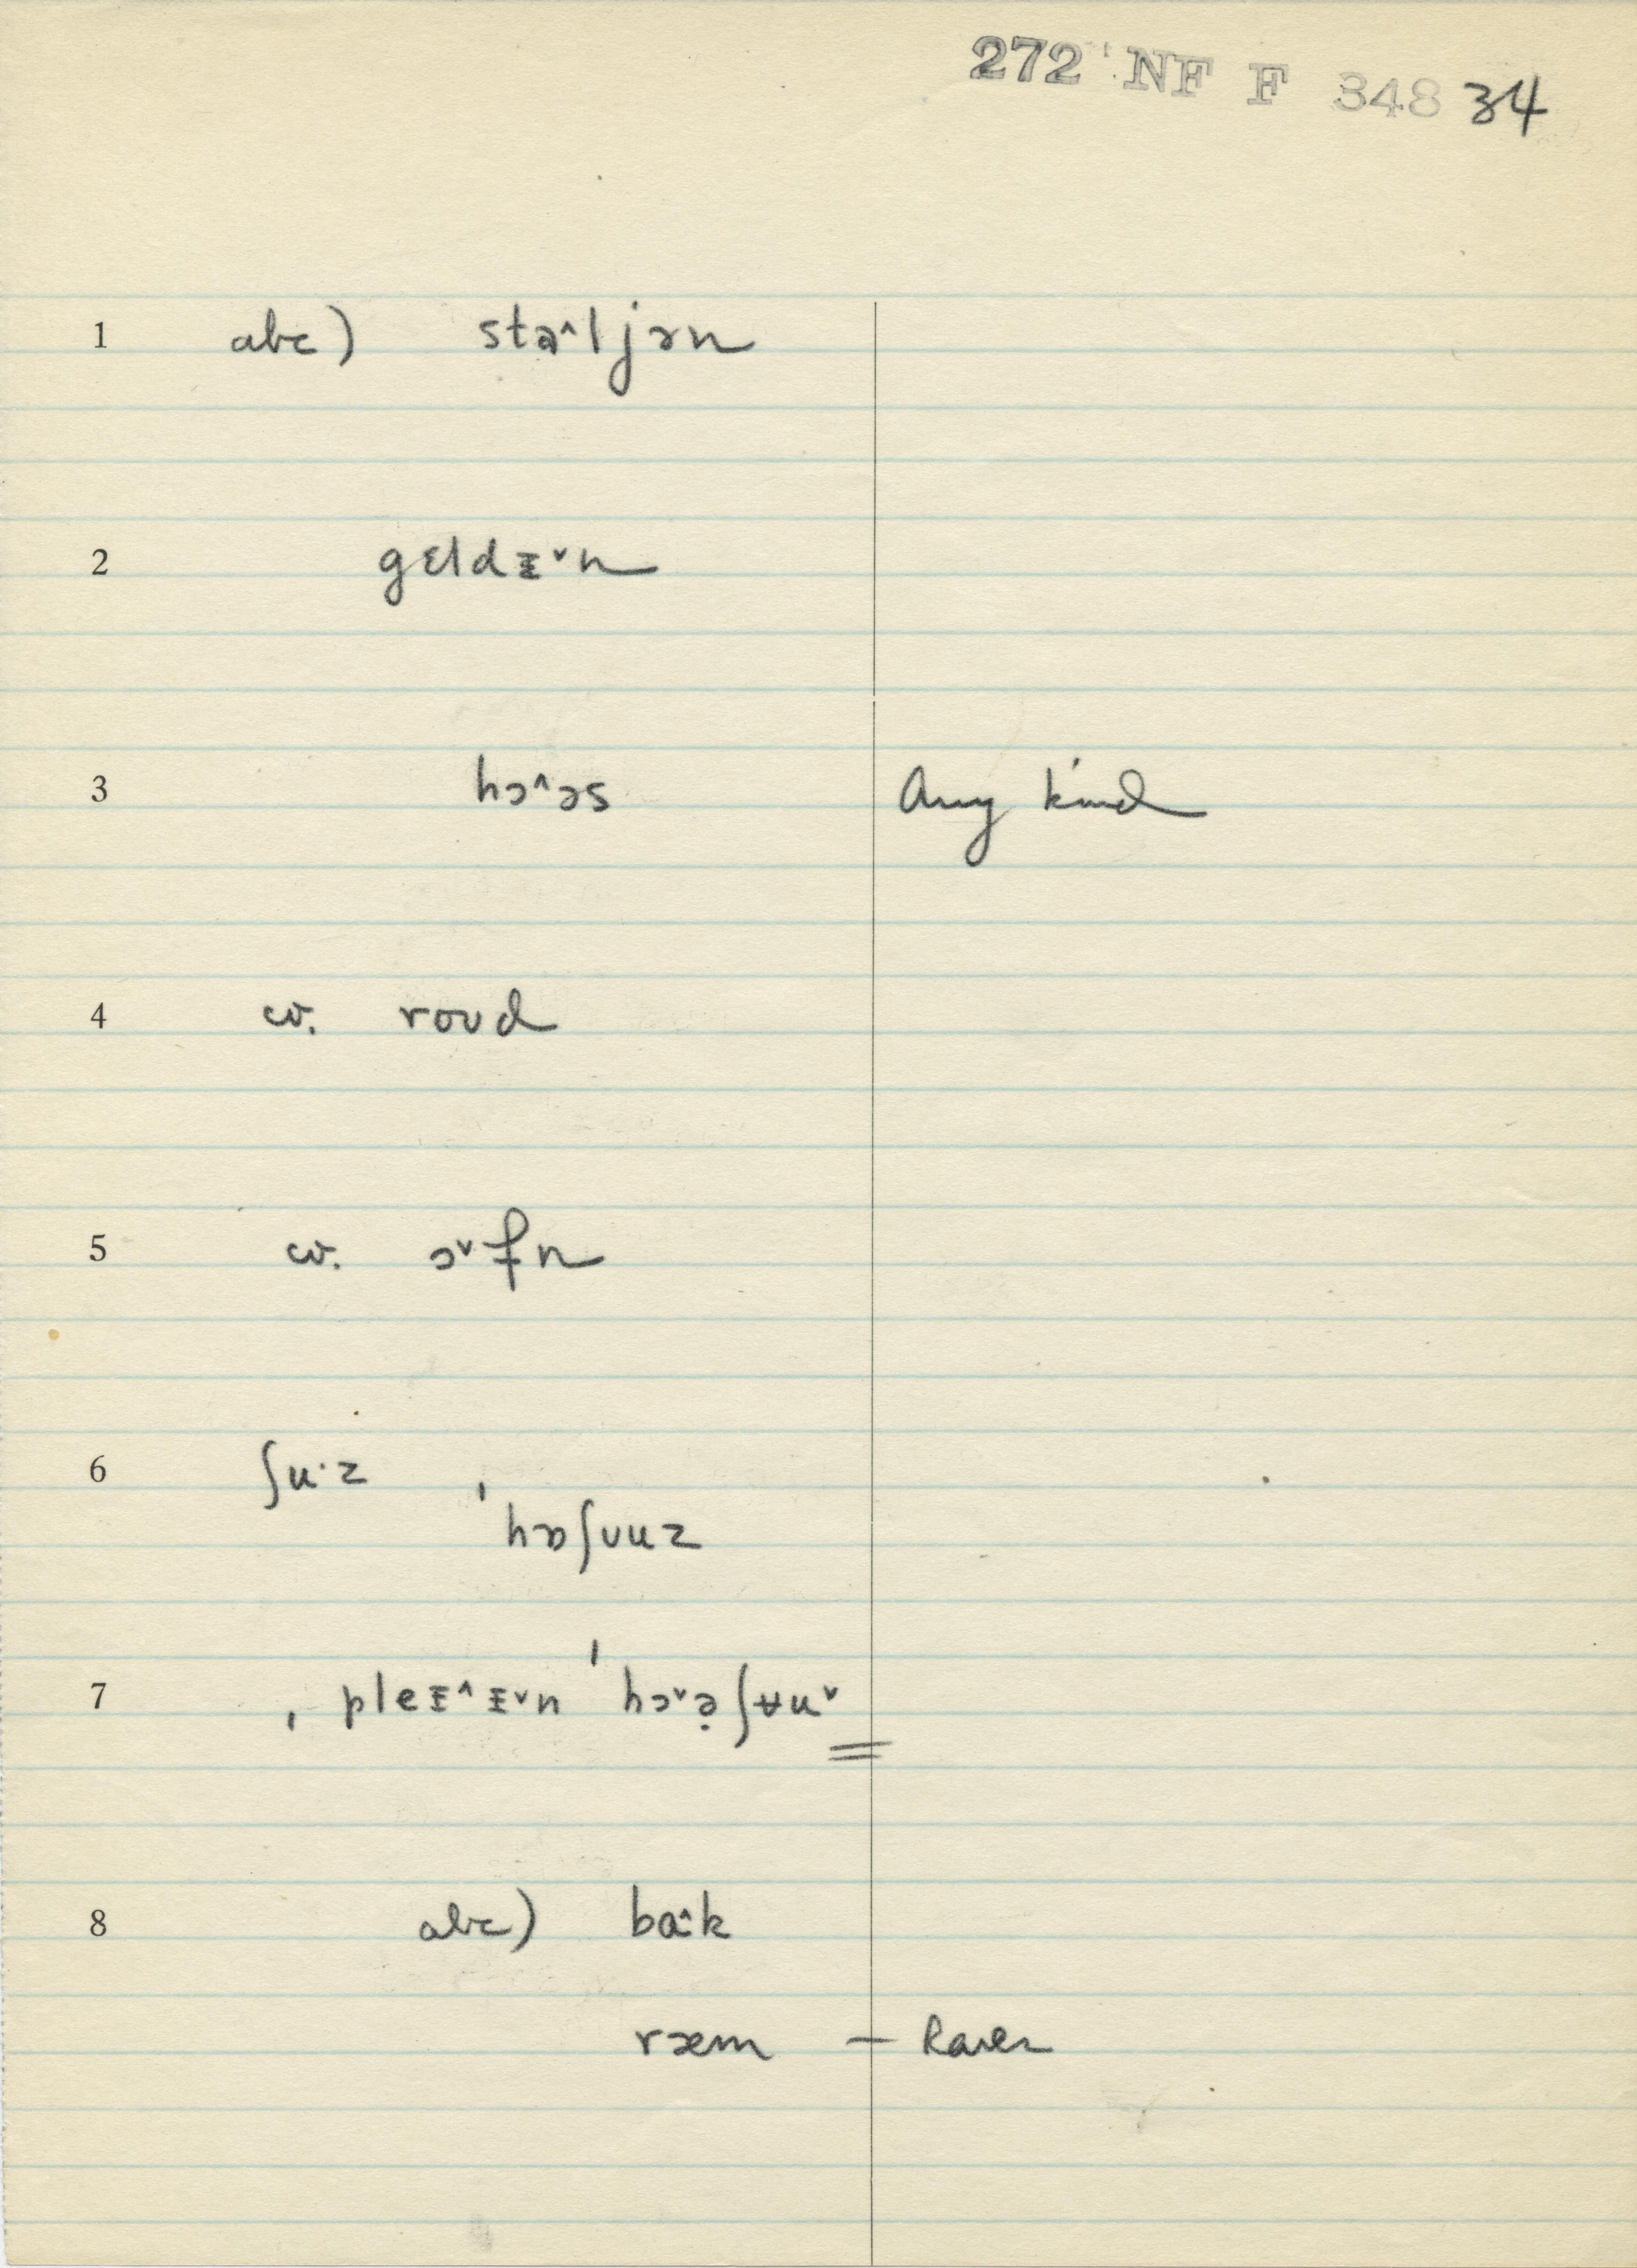 272 NF F 348 34
1 abc) stɑ˄ljən
2 gɛldᵻ˅n
3 hɔ˄əs Any kind
4 cv. roʊd
5 cv. ɔ˅fn
6 ʃu·z
ˈhɒʃʊuz
7 ˌpleᵻ˄ᵻ˅n ˈhɔ˅ə̣ʃʉu˅
8 abc) bɑ˄·k
ræm —